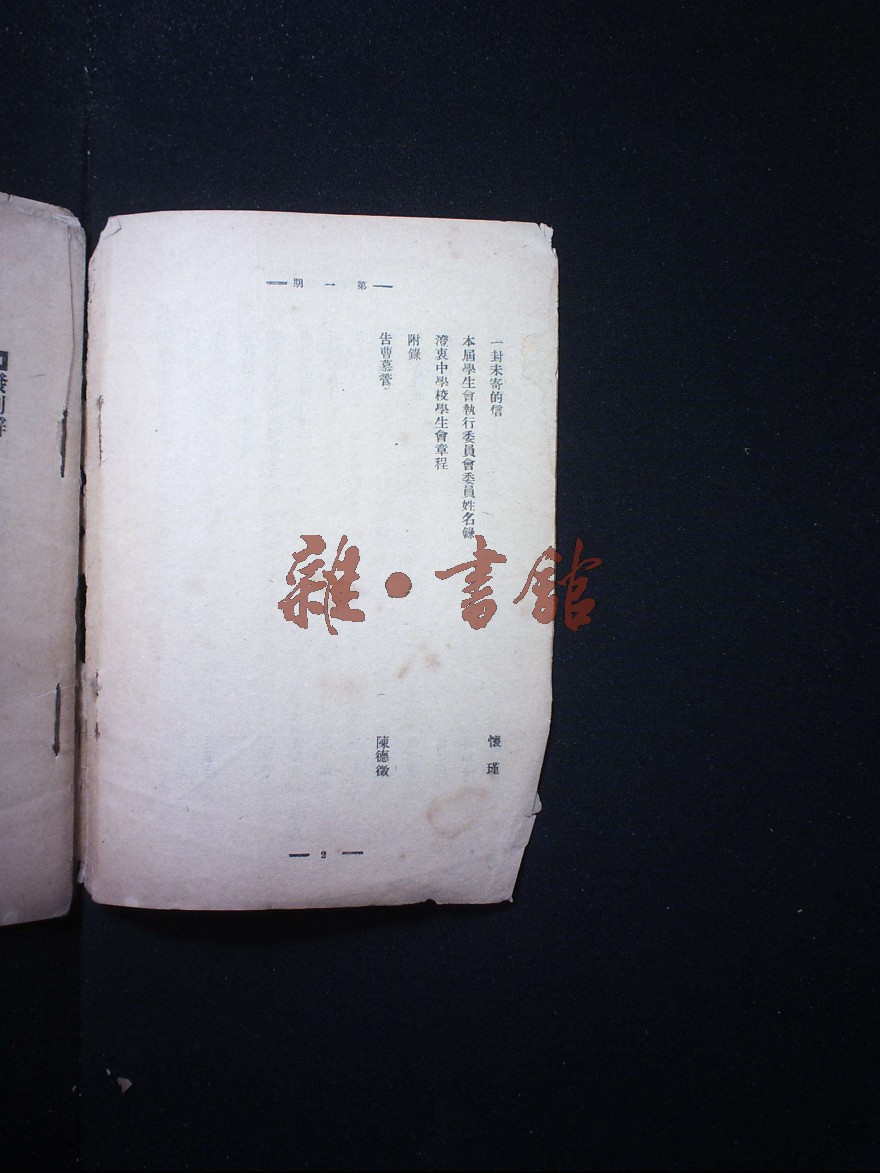 第一期
一封未寄的信
懷瑾
本屆學生會執行委員會委員姓名錄
澄衷中學校學生會章程
附錄
告曹慕管
陳德徵
2
發刊辭
雜·書館